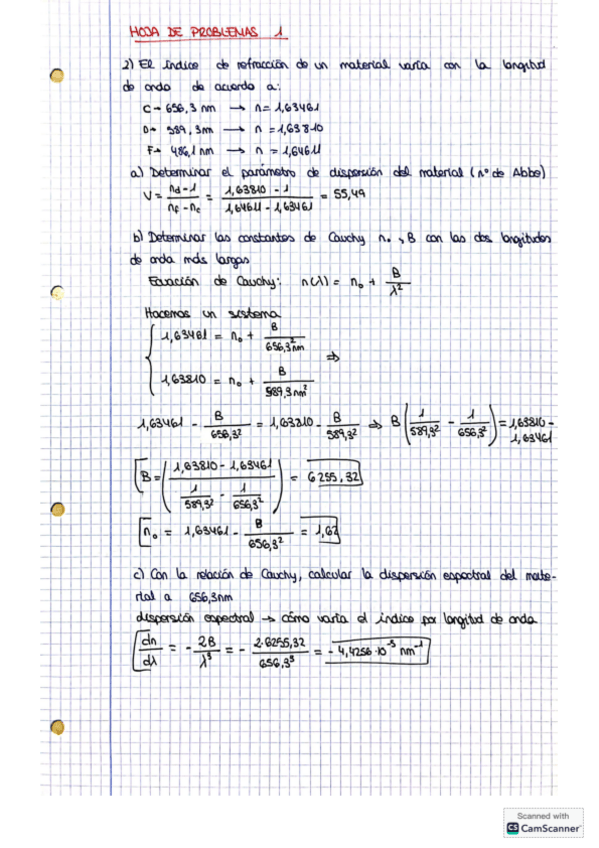 HOJA DE PROBLEMAS 1
2) El índice de refracción de un material varía con la longitud
de onda de acuerdo a:
C → 656,3 nm → n = 1,63461
D → 589,3nm → n = 1,63810
F → 486,1 nm → n = 1,64611
a) Determinar el parámetro de dispersión del material (nº de Abbe)
V = (nd - 1)/(nF - nc) = (1,63810 - 1)/(1,64611 - 1,63461) = 55,49
b) Determinar las constantes de Cauchy n₀ y B con las dos longitudes
de onda más largas
Ecuación de Cauchy: n(λ) = n₀ + B/λ²
Hacemos un sistema
{ 1,63461 = n₀ + B/656,3²nm ⇒
1,63810 = n₀ + B/589,3nm²
1,63461 - B/656,3² = 1,63810 - B/589,3² ⇒ B(1/589,3² - 1/656,3²) = 1,63810 - 1,63461
B = ((1,63810 - 1,63461)/(1/589,3² - 1/656,3²)) = 6255,32
n₀ = 1,63461 - B/656,3² = 1,62
c) Con la relación de Cauchy, calcular la dispersión espectral del mate-
rial a 656,3nm
dispersión espectral → cómo varía el índice por longitud de onda
dn/dλ = - 2B/λ³ = - 2·6255,32/656,3³ = - 4,4256·10⁻⁵ nm⁻¹
Scanned with
CS CamScanner